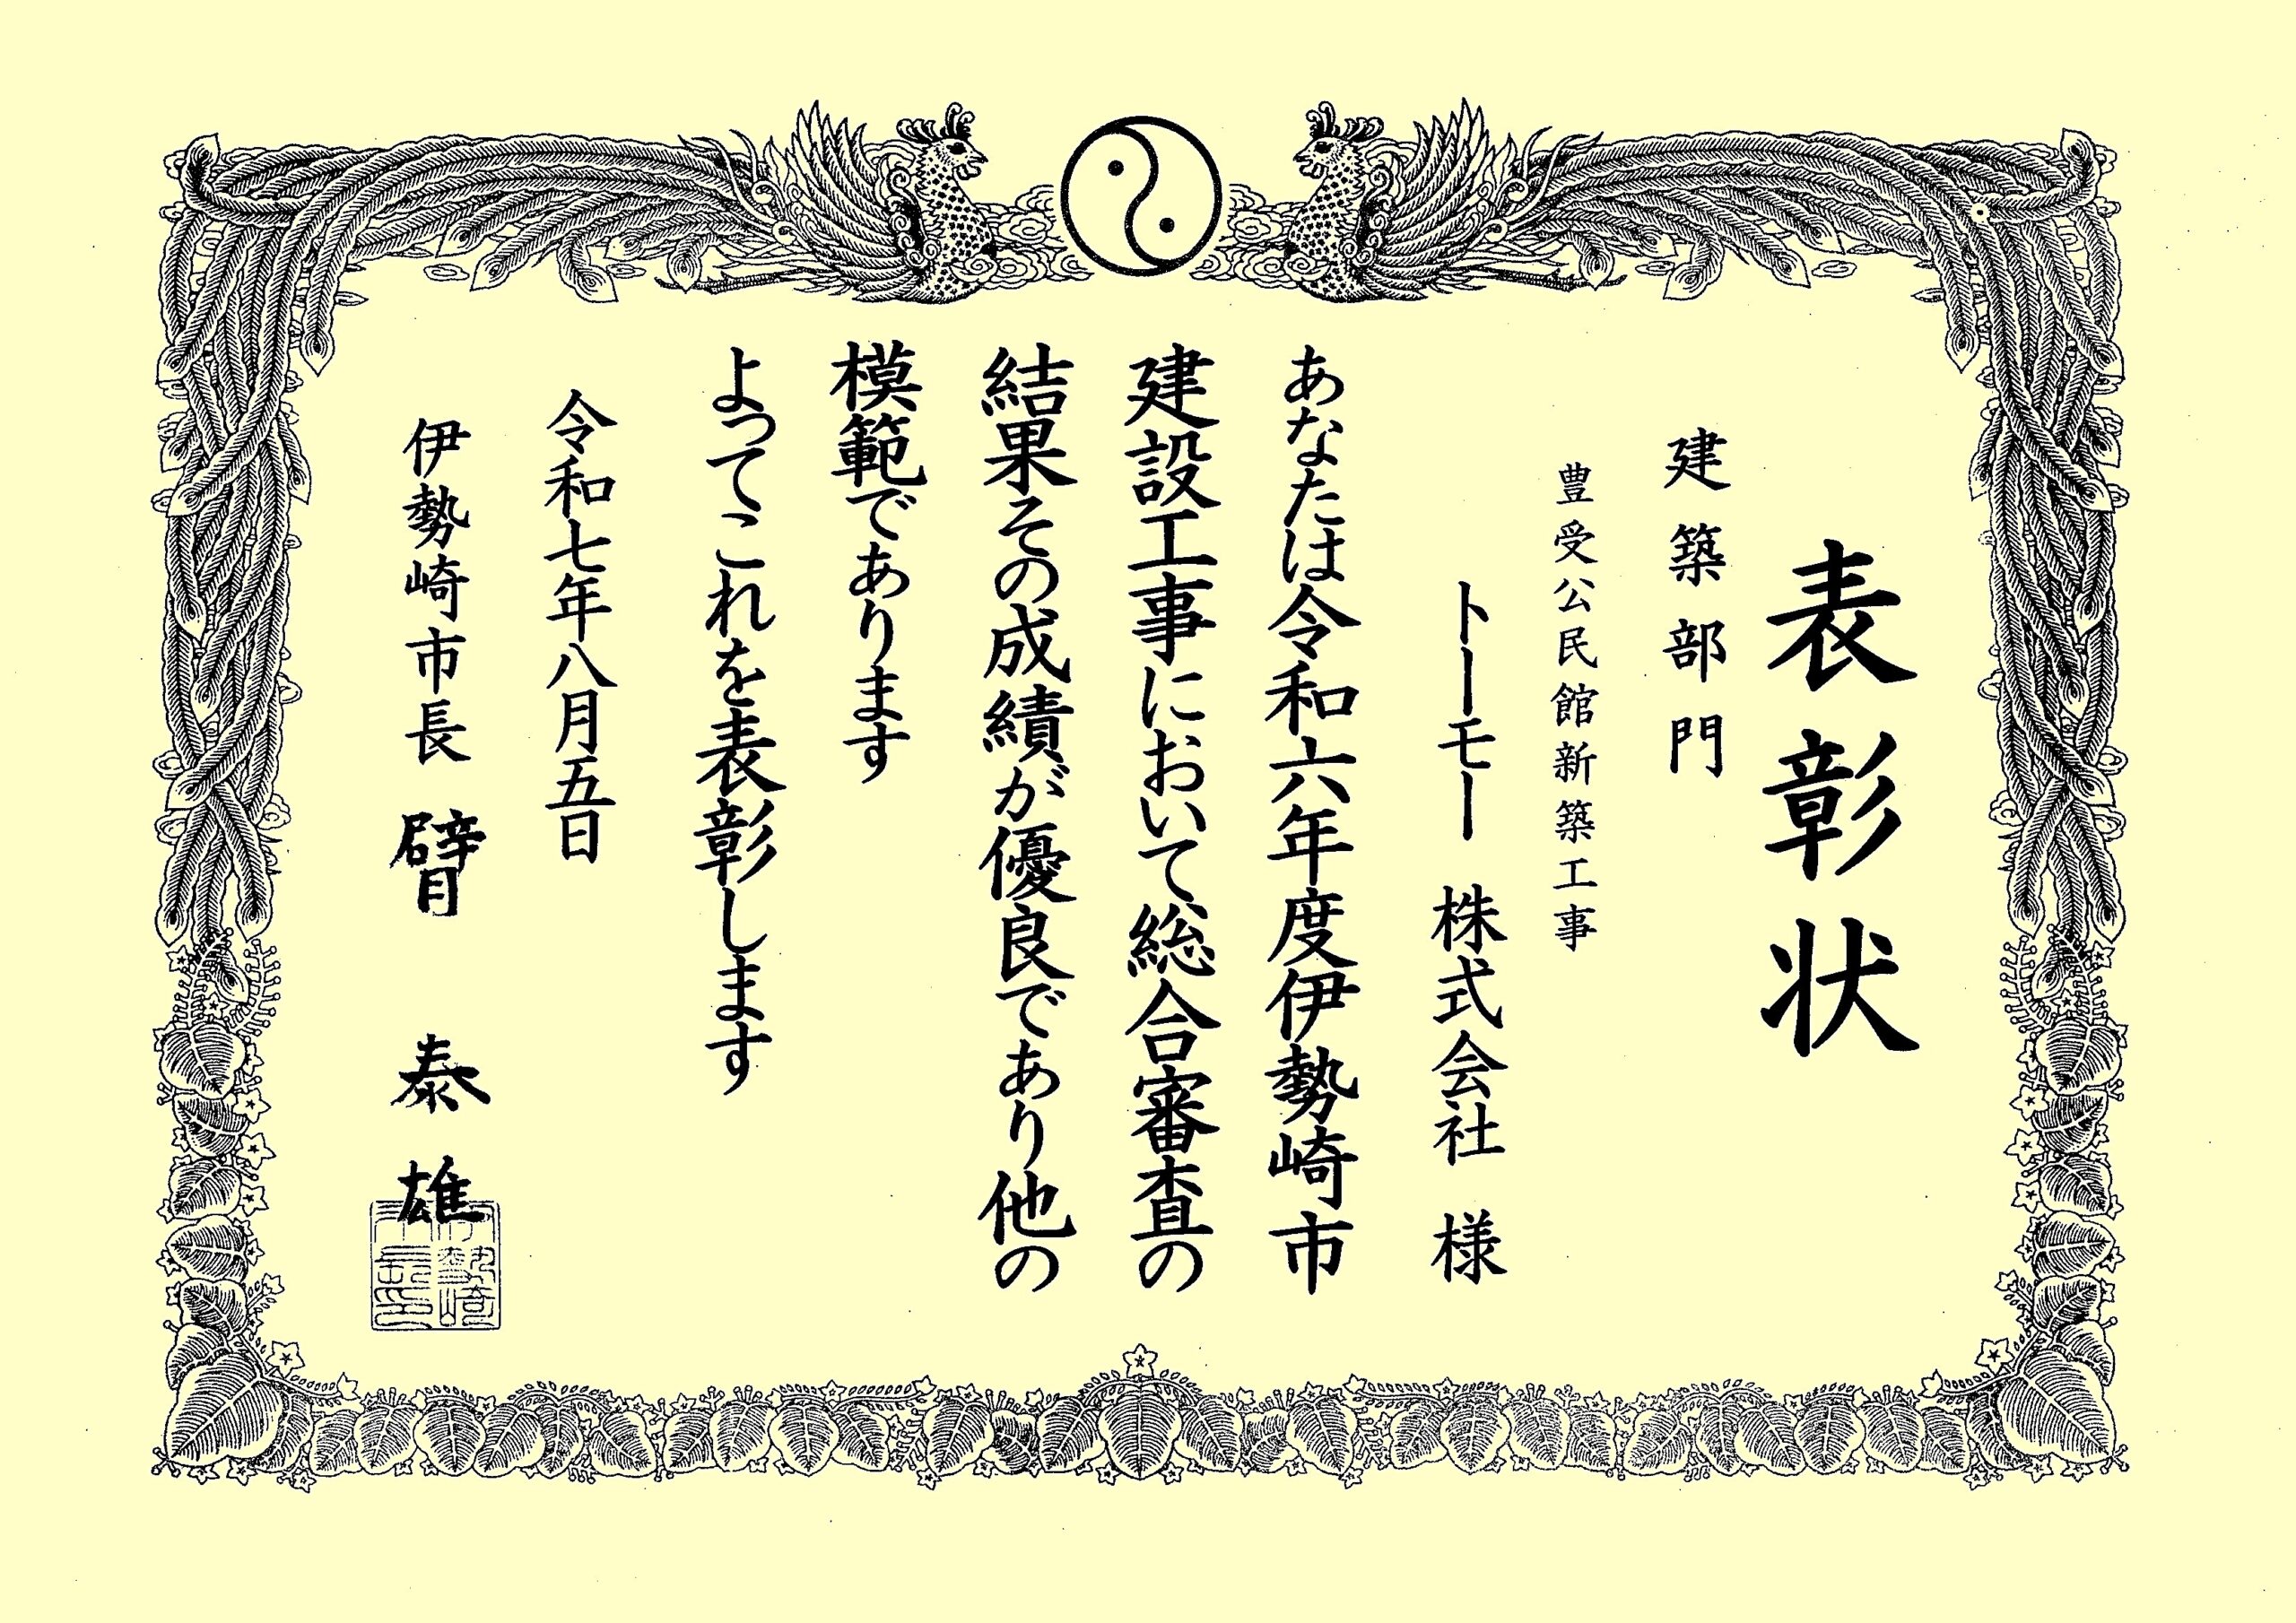 表彰状
建築部門
豊受公民館新築工事
トーモー 株式会社 様
あなたは令和六年度伊勢崎市
建設工事において総合審査の
結果その成績が優良であり他の
模範であります
よってこれを表彰します
令和七年八月五日
伊勢崎市長 臂 泰雄
伊勢崎市長印